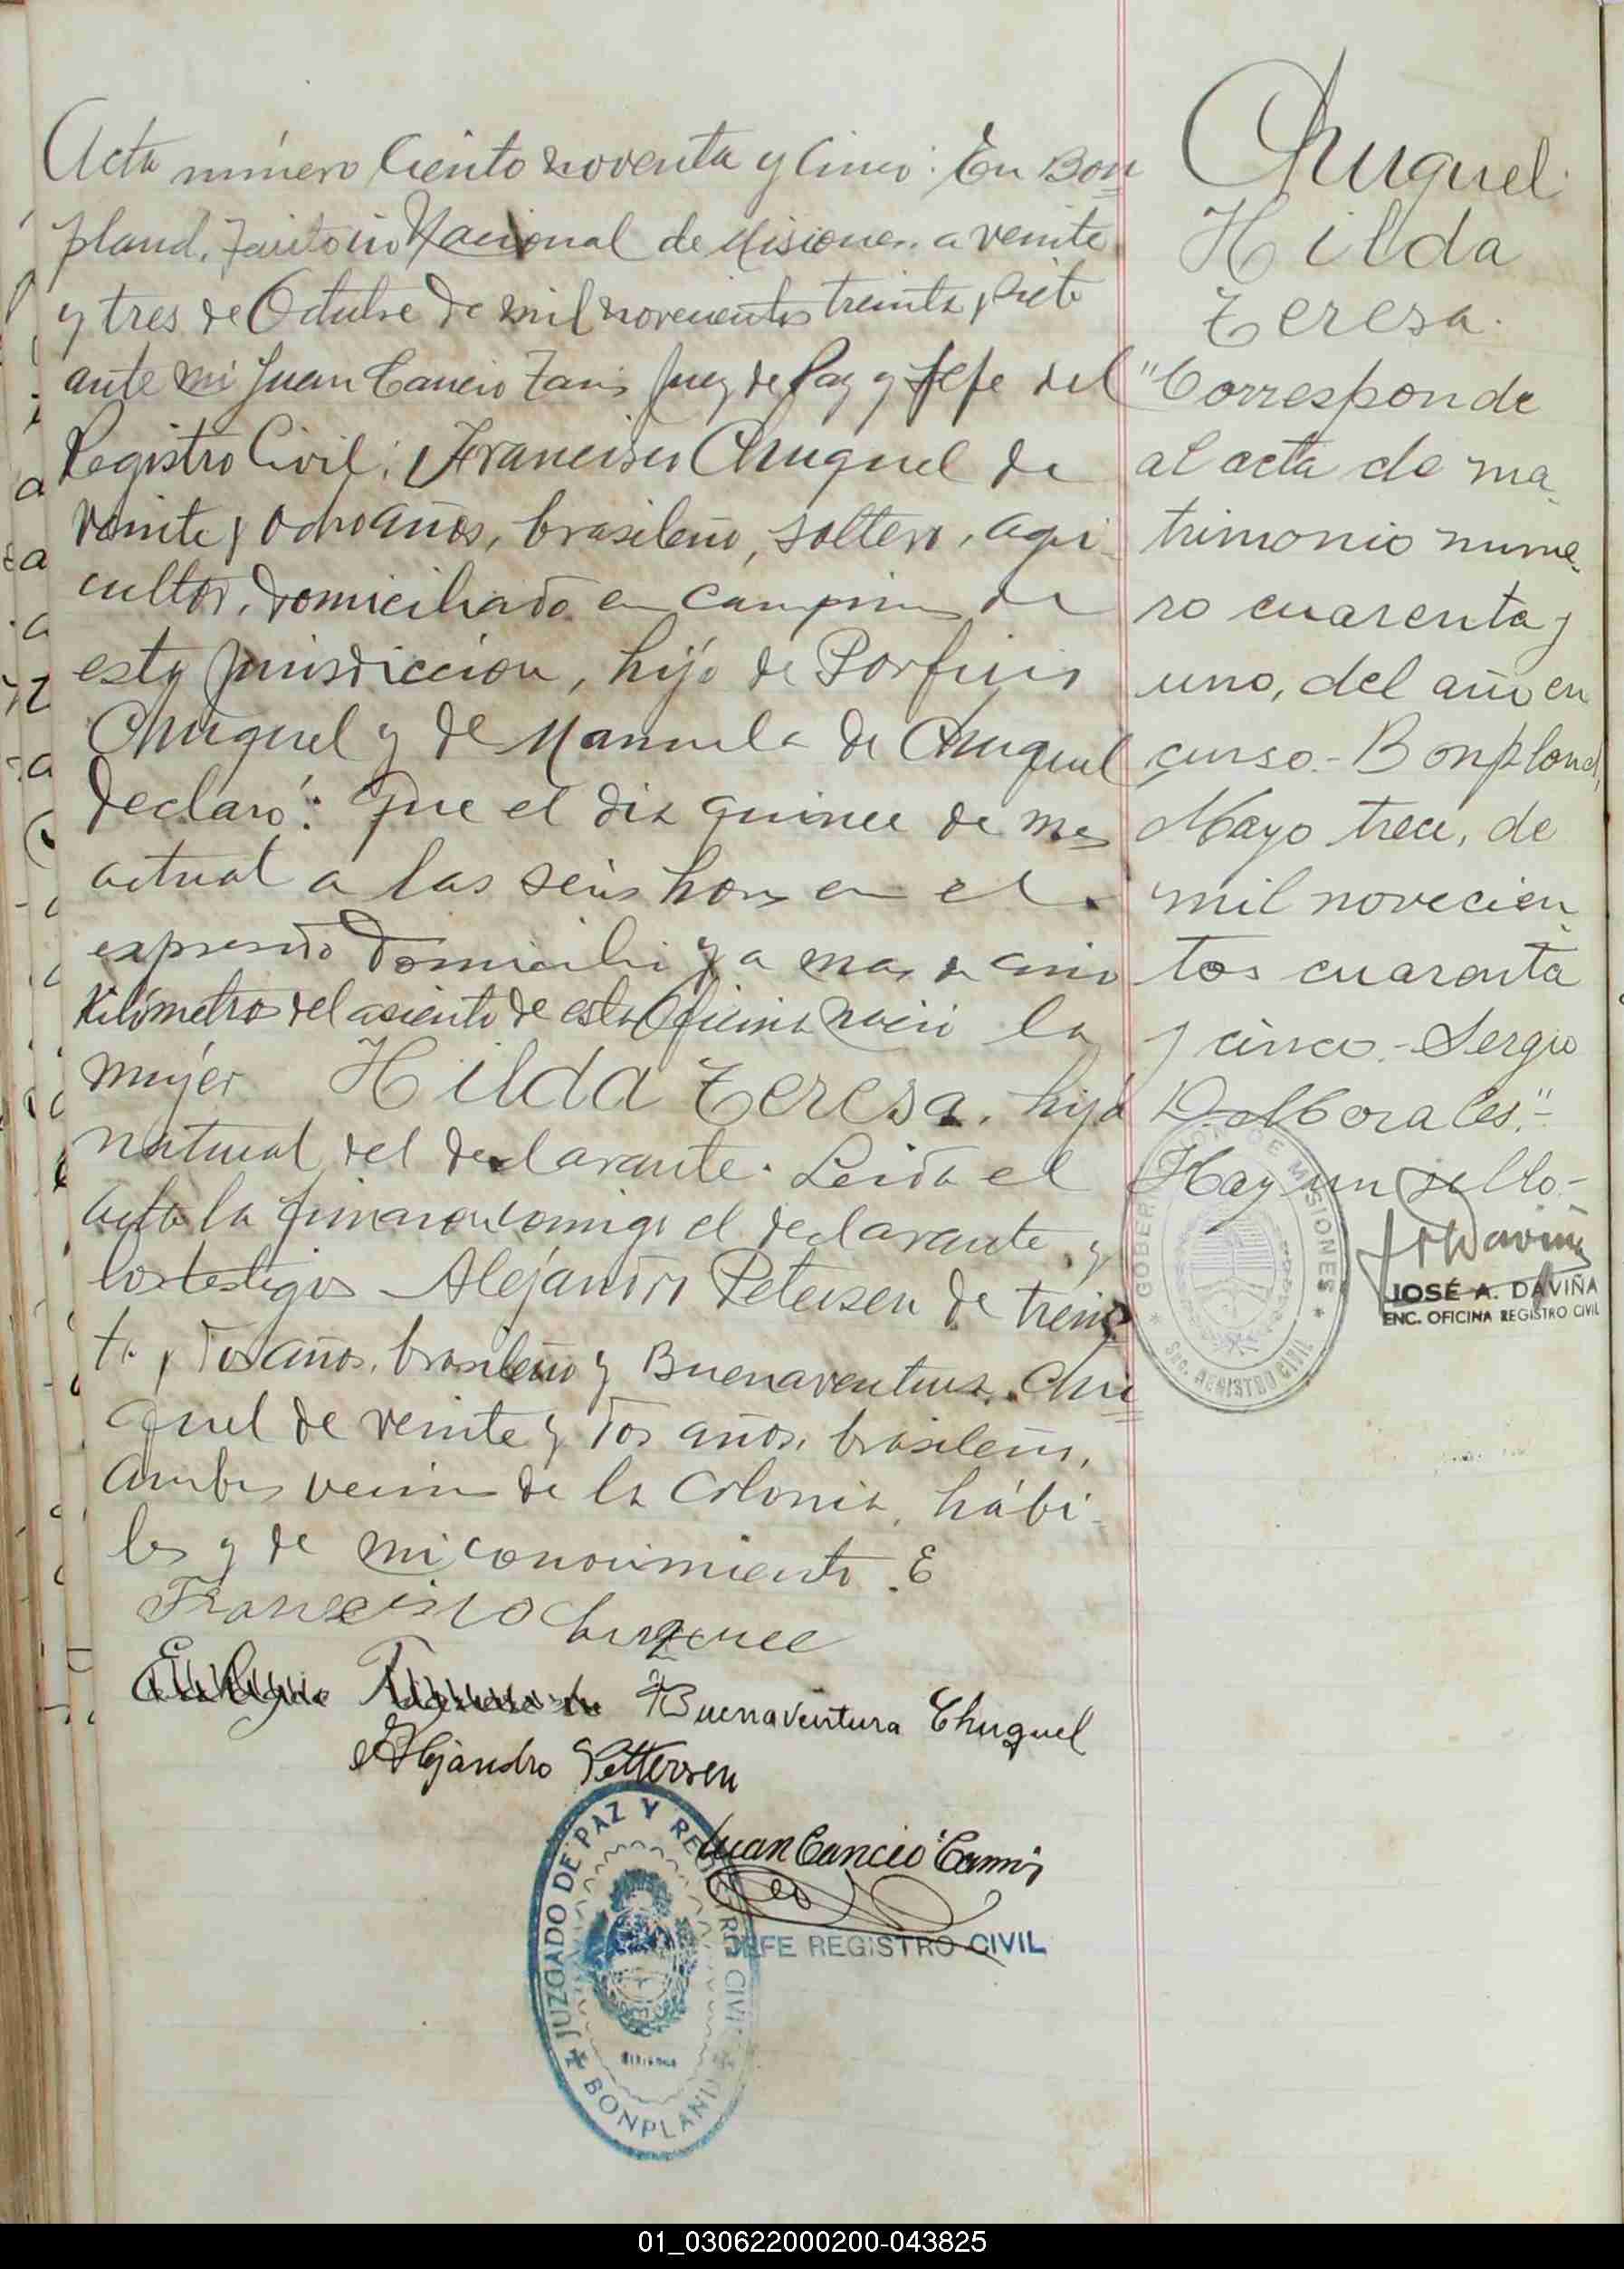 Acta número Ciento noventa y Cinco: En Bon
pland, Territorio Nacional de Misiones a veinte
y tres de Octubre de mil novecientos treinta y siete
ante mi Juan Cancio Juez de Paz y Jefe del
Registro Civil; Francisco Chuquel de
veinte y ocho años, brasileño, soltero, agri
cultor, domiciliado en de
esta jurisdiccion, hijo de Porfirio
Chuquel y de Manuela de Chuquel
declaró: Que el dia quince de mes
actual a las seis horas en el
expresado domicilio y a mas de cinco
Kilómetros del asiento de esta Oficina nació la
mujer Hilda Teresa, hija
natural del declarante. Leida el
acta la firmaron conmigo el declarante y
los testigos Alejandro Petersen de trein
ta y dos años, brasileño y Buenaventura Chu
quel de veinte y dos años, brasileño,
ambos vecinos de la Colonia, hábi-
les y de mi conocimiento. E
Francisco Chuquel
Buenaventura Chuquel
Alejandro Pettersen
Juan Cancio
JEFE REGISTRO CIVIL
JUZGADO DE PAZ Y REGISTRO CIVIL
BONPLAND
Chuquel
Hilda
Teresa.
"Corresponde
al acta de ma
trimonio nume
ro cuarenta y
uno, del año en
curso.- Bonpland,
Mayo trece, de
mil novecien
tos cuarenta
y cinco.- Sergio
D. Morales."-
Hay un sello.-
GOBERNACION DE MISIONES
Sec. REGISTRO CIVIL
JOSÉ A. DAVIÑA
ENC. OFICINA REGISTRO CIVIL
01_030622000200-043825